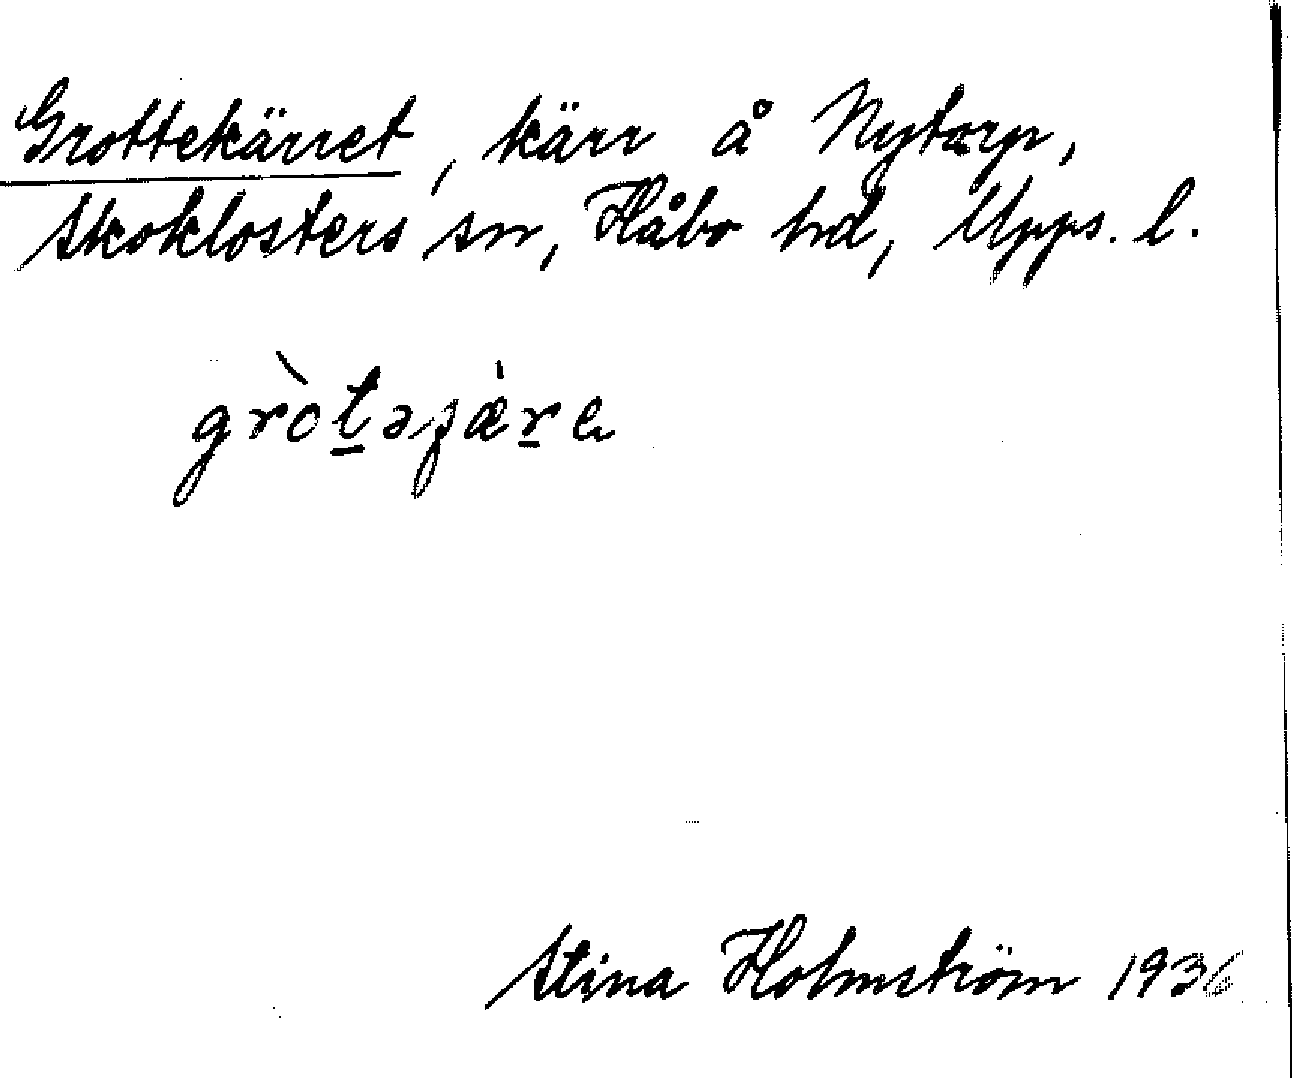 Grottekärret, kärr å Nytorp,
Skoklosters sn, Håbo hd, Upps. l.
grò̀t̲əʝæ̀r̲e
Stina Holmström 1936